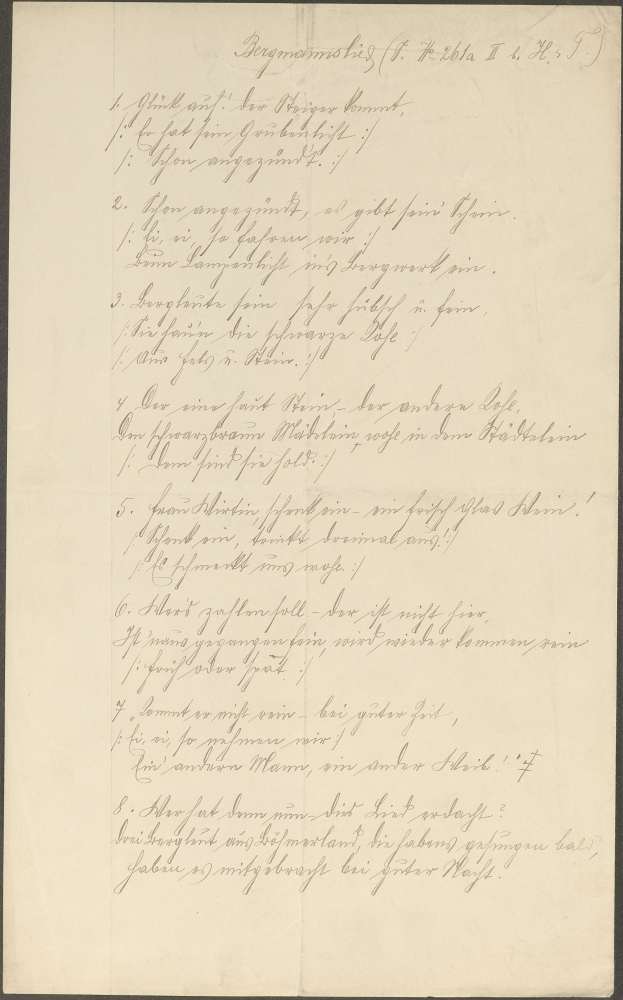 Bergmannslied (S. № 261a II b. H. s. T.)
1. Glück auf! der Steiger kommt,
/: Er hat sein Grubenlicht :/
/: Schon angezündt. :/
2. Schon angezündt, es gibt sein' Schein.
/: Ei, ei, so fahren wir :/
Beim Lampenlicht in's Bergwerk ein.
3. Bergleute sein sehr hübsch u. fein,
/: Sie hau'n die schwarze Kohl :/
/: Aus Fels u. Stein. :/
4 Der eine haut Stein - der andere Kohl,
Den schwarzbraun Mädelein, wohl in dem Städtelein
/: Dem sind sie hold. :/
5. Frau Wirtin, schenk ein - ein frisch Glas Wein!
/: Schenk ein, trinkt dreimal aus! :/
/: Es schmeckt uns wohl. :/
6. Wer's zahlen soll - der ist nicht hier,
Ist 'naus gegangen fein, wird wieder kommen rein
/: früh oder spät. :/
7 Kommt er nicht rein - bei guter Zeit,
/: Ei, ei, so nehmen wir :/
Ein' andern Mann, ein ander Weib!
8. Wer hat denn nun dies Lied erdacht?
Drei Bergleut aus Böhmerland, die habens gesungen bald,
haben es mitgebracht bei guter Nacht.